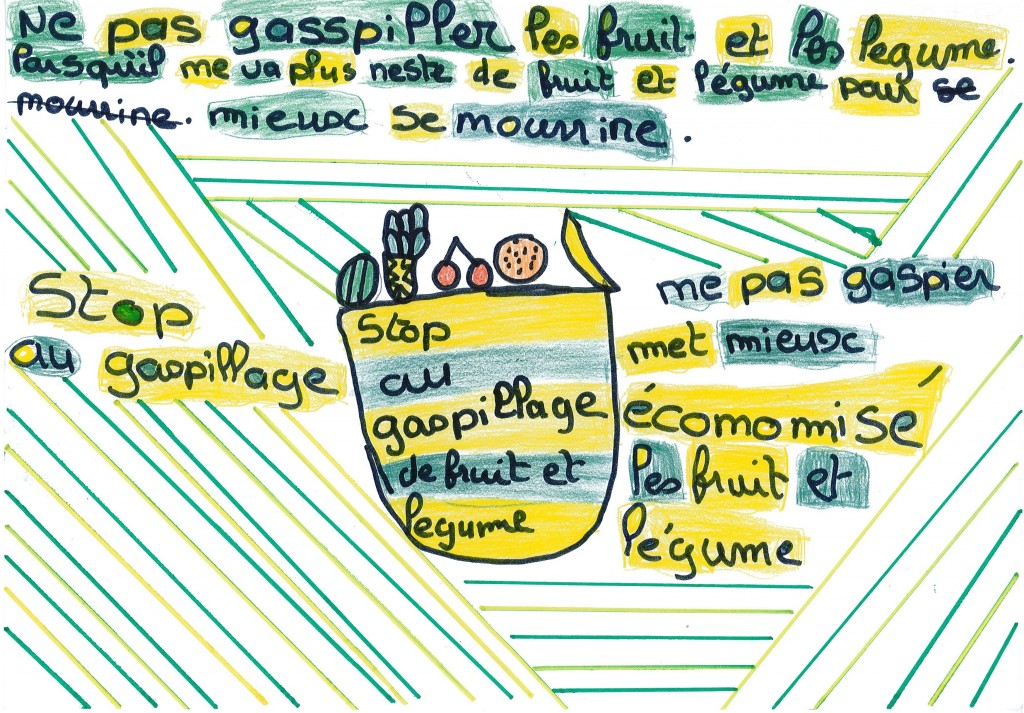 Ne pas gasspiller les fruit et les legume.
Parsqu'il me va plus reste de fruit et légume pour se
mourrire. mieusc se mourrire.
Stop
au gaspillage
Stop
au
gaspillage
de fruit et
legume
me pas gaspier
met mieusc
écomomisé
les fruit et
légume